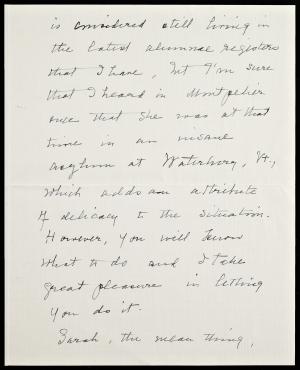 is considered still living in
the latest alumnae registers
that I have, but I'm sure
that I heard in Montpelier
once that she was at that
time in an insane
asylum at Waterbury, Vt.,
which adds an attribute
of delicacy to the situation.
However, you will know
what to do and I take
great pleasure in letting
you do it.
Sarah, the mean thing,